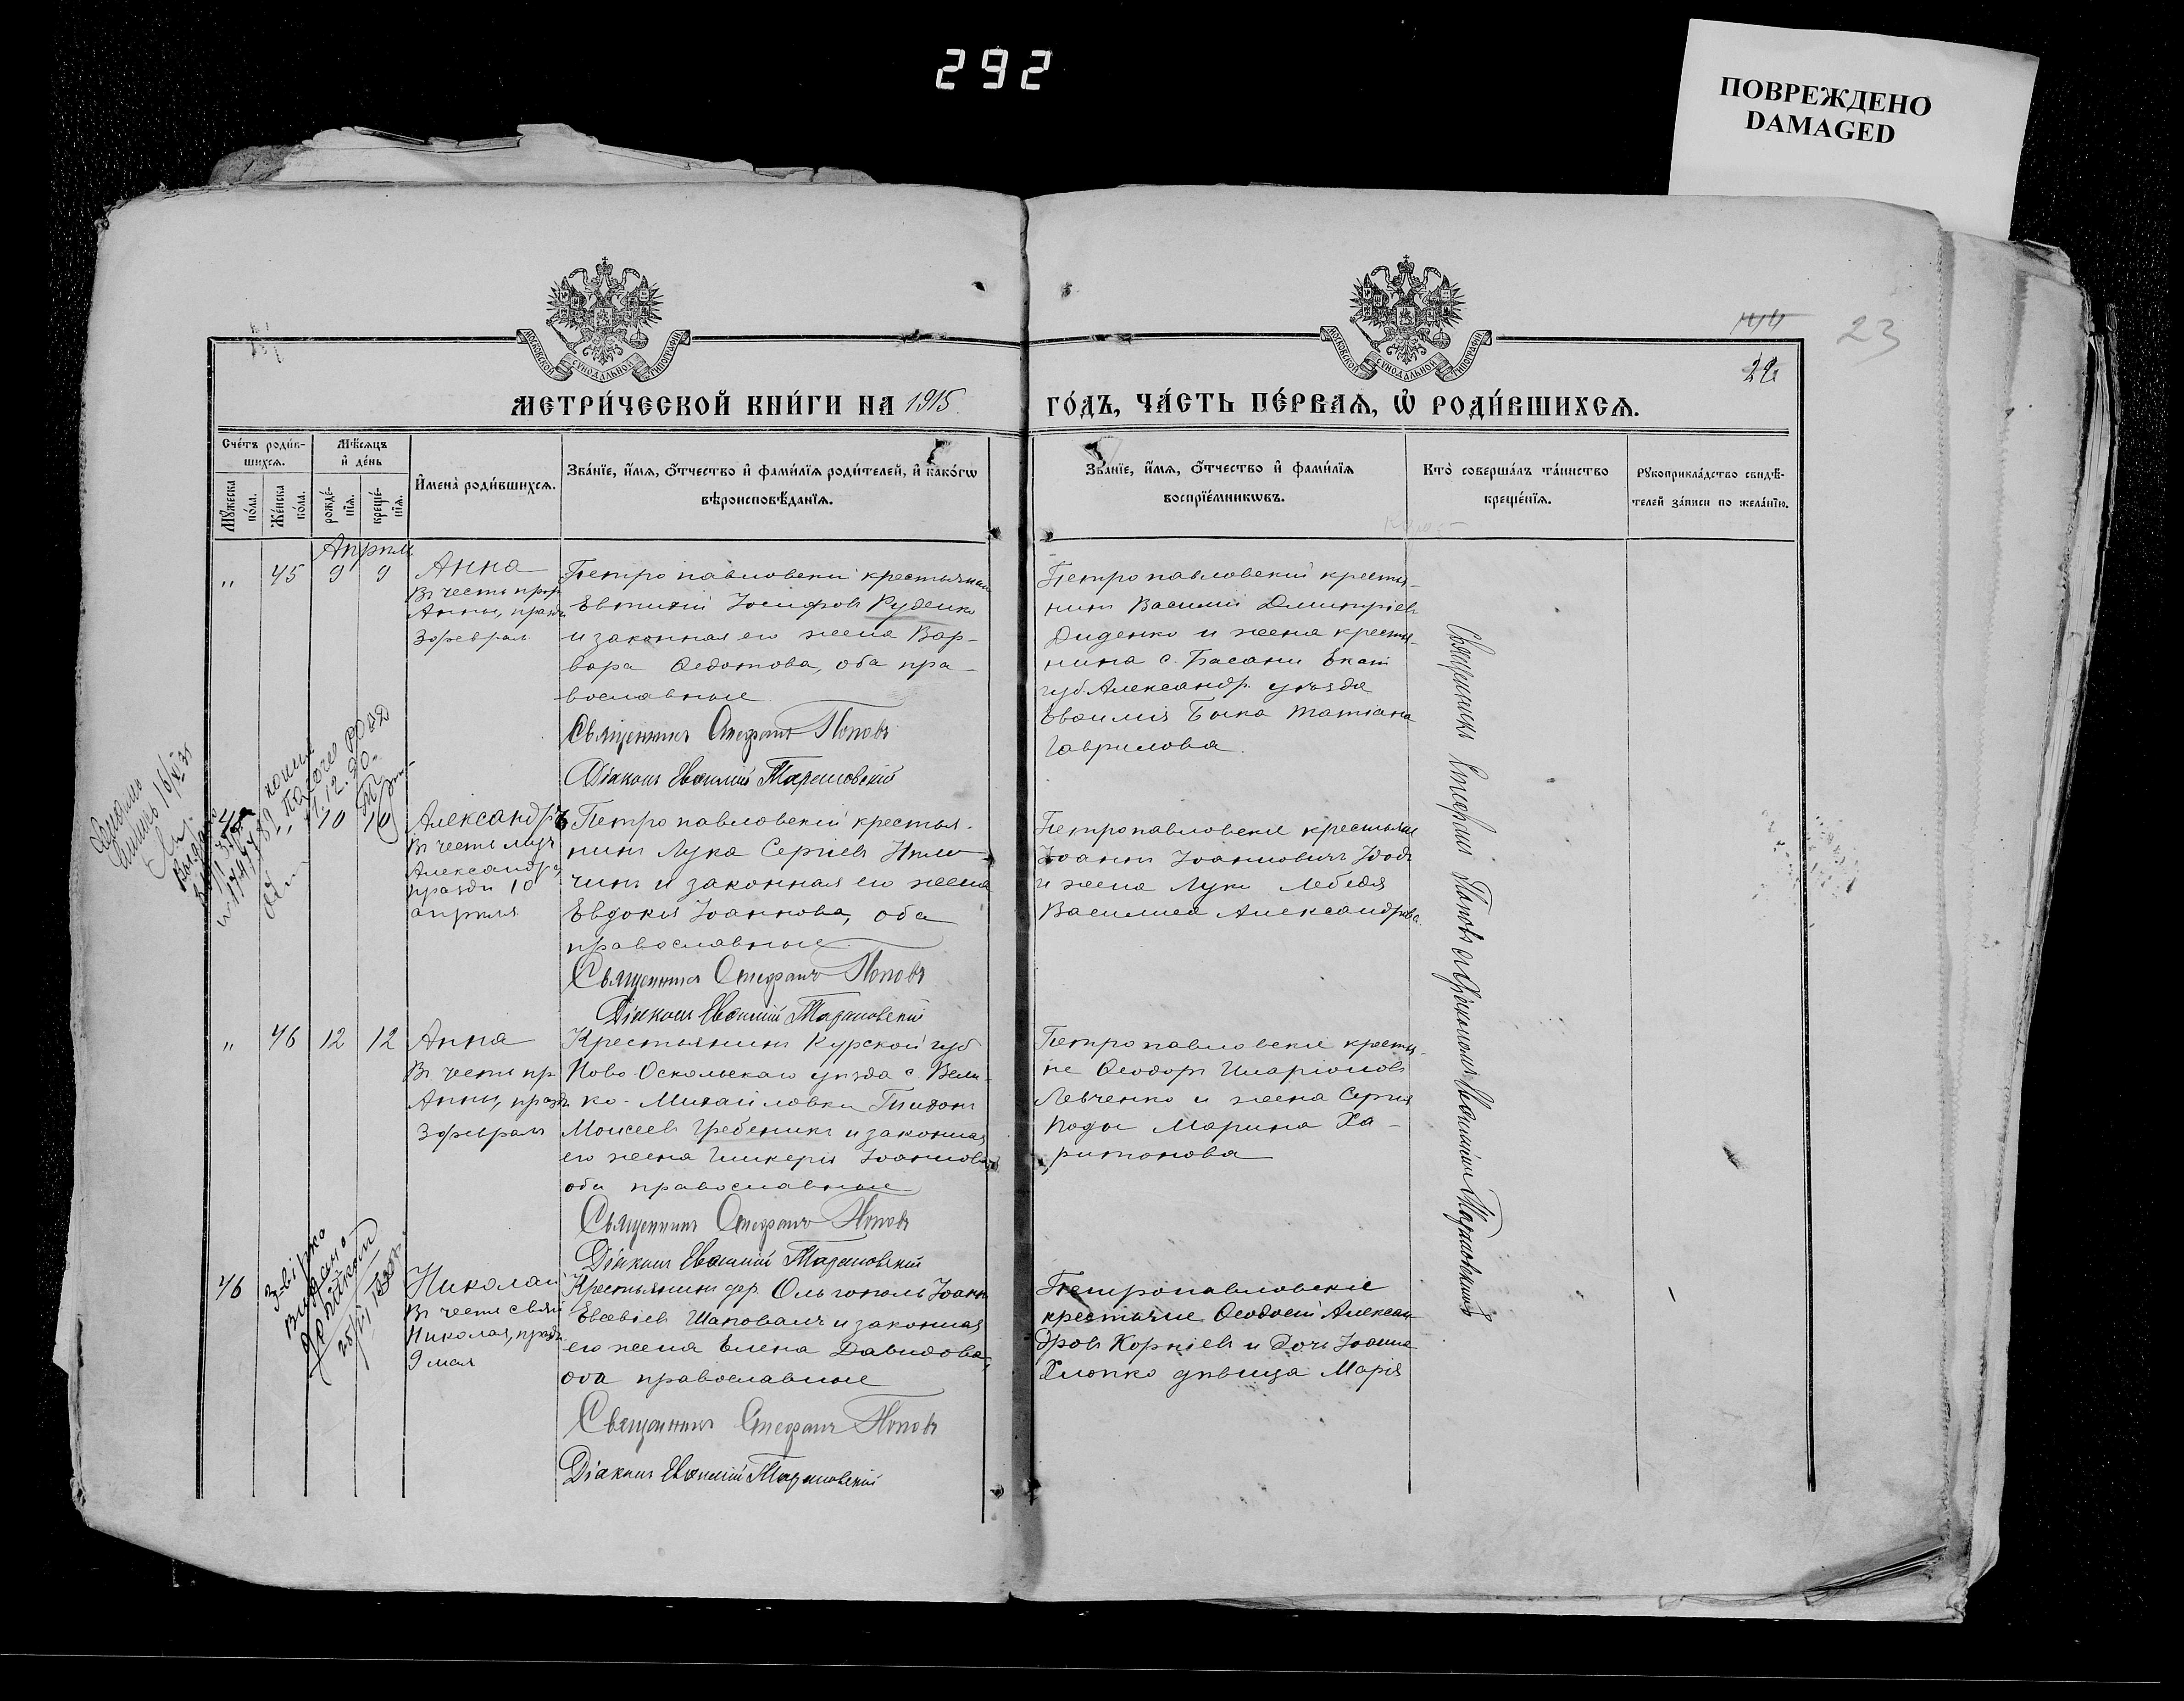 292
ПОВРЕЖДЕНО
DAMAGED
23
МОСКОВСКОЙ СУНОДАЛЬНОЙ ТИПОГРАФІИ
МОСКОВСКОЙ СУНОДАЛЬНОЙ ТИПОГРАФІИ
МЕТРИ́ЧЕСКОЙ КНИ́ГИ НА 1915
ГО́ДЪ, ЧА́СТЬ ПЕ́РВАѦ, Ѽ РОДИ́ВШИХСѦ.
Сче́тъ роди́в-
шихсѧ.
Мѣ́сѧцъ
и҆ де́нь
Мꙋ́жеска
по́ла.
Же́нска
по́ла.
рожде́-
нїѧ.
креще́-
нїѧ.
И҆мена̀ роди́вшихсѧ.
Зва́нїе, и҆́мѧ, ѻ҆́тчество и҆ фами́лїѧ роди́телей, и҆ како́гѡ
вѣроисповѣ́данїѧ.
Зва́нїе, и҆́мѧ, ѻ҆́тчество и҆ фами́лїѧ
воспрїе́мникѡвъ.
Кто̀ соверша́лъ та́инство
креще́нїѧ.
Рꙋкоприкла́дство свидѣ́-
телей за́писи по жела́нїю.
Апрель
" 45 9 9
Анна
Въ честь прор
Анны, празд
3 февраля
Петропавловскій крестьянин
Евѳимій Іосифовъ Руденко
и законная его жена Вар-
вара Ѳедотова, оба пра-
вославные
Священникъ Стефанъ Поповъ
Діаконъ Евѳимій Тарановскій
Петропавловскій крестья-
нин Василій Димитріевъ
Диденко и жена крестья-
нина с. Басани Екат
губ. Александр. уѣзда
Евѳимія Быка Татіана
Гаврилова.
" 10 10
Александръ
Въ честь муч
Александра,
празд 10
апреля
Петропавловскій крестья-
нин Лука Сергіевъ
чинъ и законная его жена
Евдокія Іоаннова, оба
православные
Священникъ Стефанъ Поповъ
Діаконъ Евѳимій Тарановскій
Петропавловскіе крестьяне
Іоаннъ Іоанновичъ
и жена Луки Лебедя
Василиса Александрова
" 46 12 12
Анна
Въ честь пр.
Анны, празд
3 февраля
Крестьянинъ Курской губ
Ново-Оскольскаго уѣзда с. Вели-
ко-Михайловки Тихонъ
Моисеевъ Гребеникъ и законная
его жена Гликерія Іоаннова,
оба православные
Священникъ Стефанъ Поповъ
Діаконъ Евѳимій Тарановскій
Петропавловскіе крестья-
не Ѳеодоръ Иларіоновъ
Левченко и жена Сергія
Марина Ха-
ритонова
46
Николай
Въ честь святи
Николая, празд
9 мая
Крестьянинъ дер. Ольгополь Іоаннъ
Евсевіевъ Шаповалъ и законная
его жена Елена Давидова,
оба православные
Священникъ Стефанъ Поповъ
Діаконъ Евѳимій Тарановскій
Петропавловскіе
крестьяне Ѳеодосій Алексан-
дровъ Корніевъ и дочь Іоанна
Хлопко дѣвица Марія
Священникъ Стефанъ Поповъ съ діакономъ Евѳиміемъ Тарановскимъ